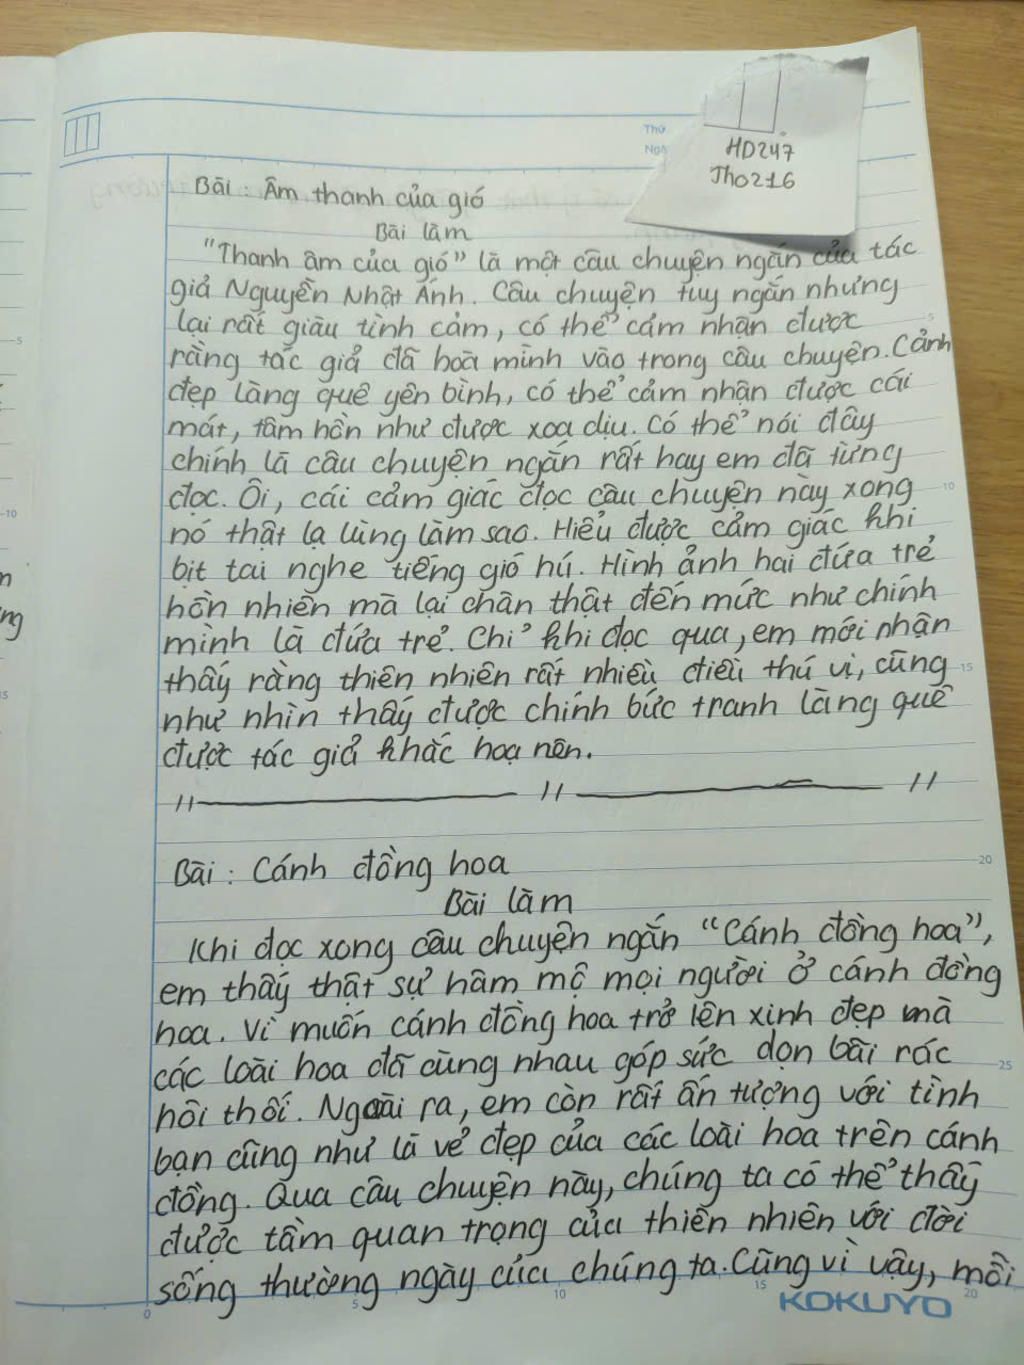 Thứ
Ngà
HD247
Th0216
Bài : Âm thanh của gió
Bài làm
"Thanh âm của gió" là một câu chuyện ngắn của tác
giả Nguyễn Nhật Ánh. Câu chuyện tuy ngắn nhưng
lại rất giàu tình cảm, có thể cảm nhận được
rằng tác giả đã hoà mình vào trong câu chuyện. Cảnh
đẹp làng quê yên bình, có thể cảm nhận được cái
mát, tâm hồn như được xoa dịu. Có thể nói đây
chính là câu chuyện ngắn rất hay em đã từng
đọc. Ôi, cái cảm giác đọc câu chuyện này xong
nó thật lạ lùng làm sao. Hiểu được cảm giác khi
bịt tai nghe tiếng gió hú. Hình ảnh hai đứa trẻ
hồn nhiên mà lại chân thật đến mức như chính
mình là đứa trẻ. Chỉ khi đọc qua, em mới nhận
thấy rằng thiên nhiên rất nhiều điều thú vị, cũng
như nhìn thấy được chính bức tranh làng quê
được tác giả khắc hoạ nên.
Bài : Cánh đồng hoa
Bài làm
Khi đọc xong câu chuyện ngắn "Cánh đồng hoa",
em thấy thật sự hâm mộ mọi người ở cánh đồng
hoa. Vì muốn cánh đồng hoa trở lên xinh đẹp mà
các loài hoa đã cùng nhau góp sức dọn bãi rác
hôi thối. Ngoài ra, em còn rất ấn tượng với tình
bạn cũng như là vẻ đẹp của các loài hoa trên cánh
đồng. Qua câu chuyện này, chúng ta có thể thấy
được tầm quan trọng của thiên nhiên với đời
sống thường ngày của chúng ta. Cũng vì vậy, mỗi
KOKUYO